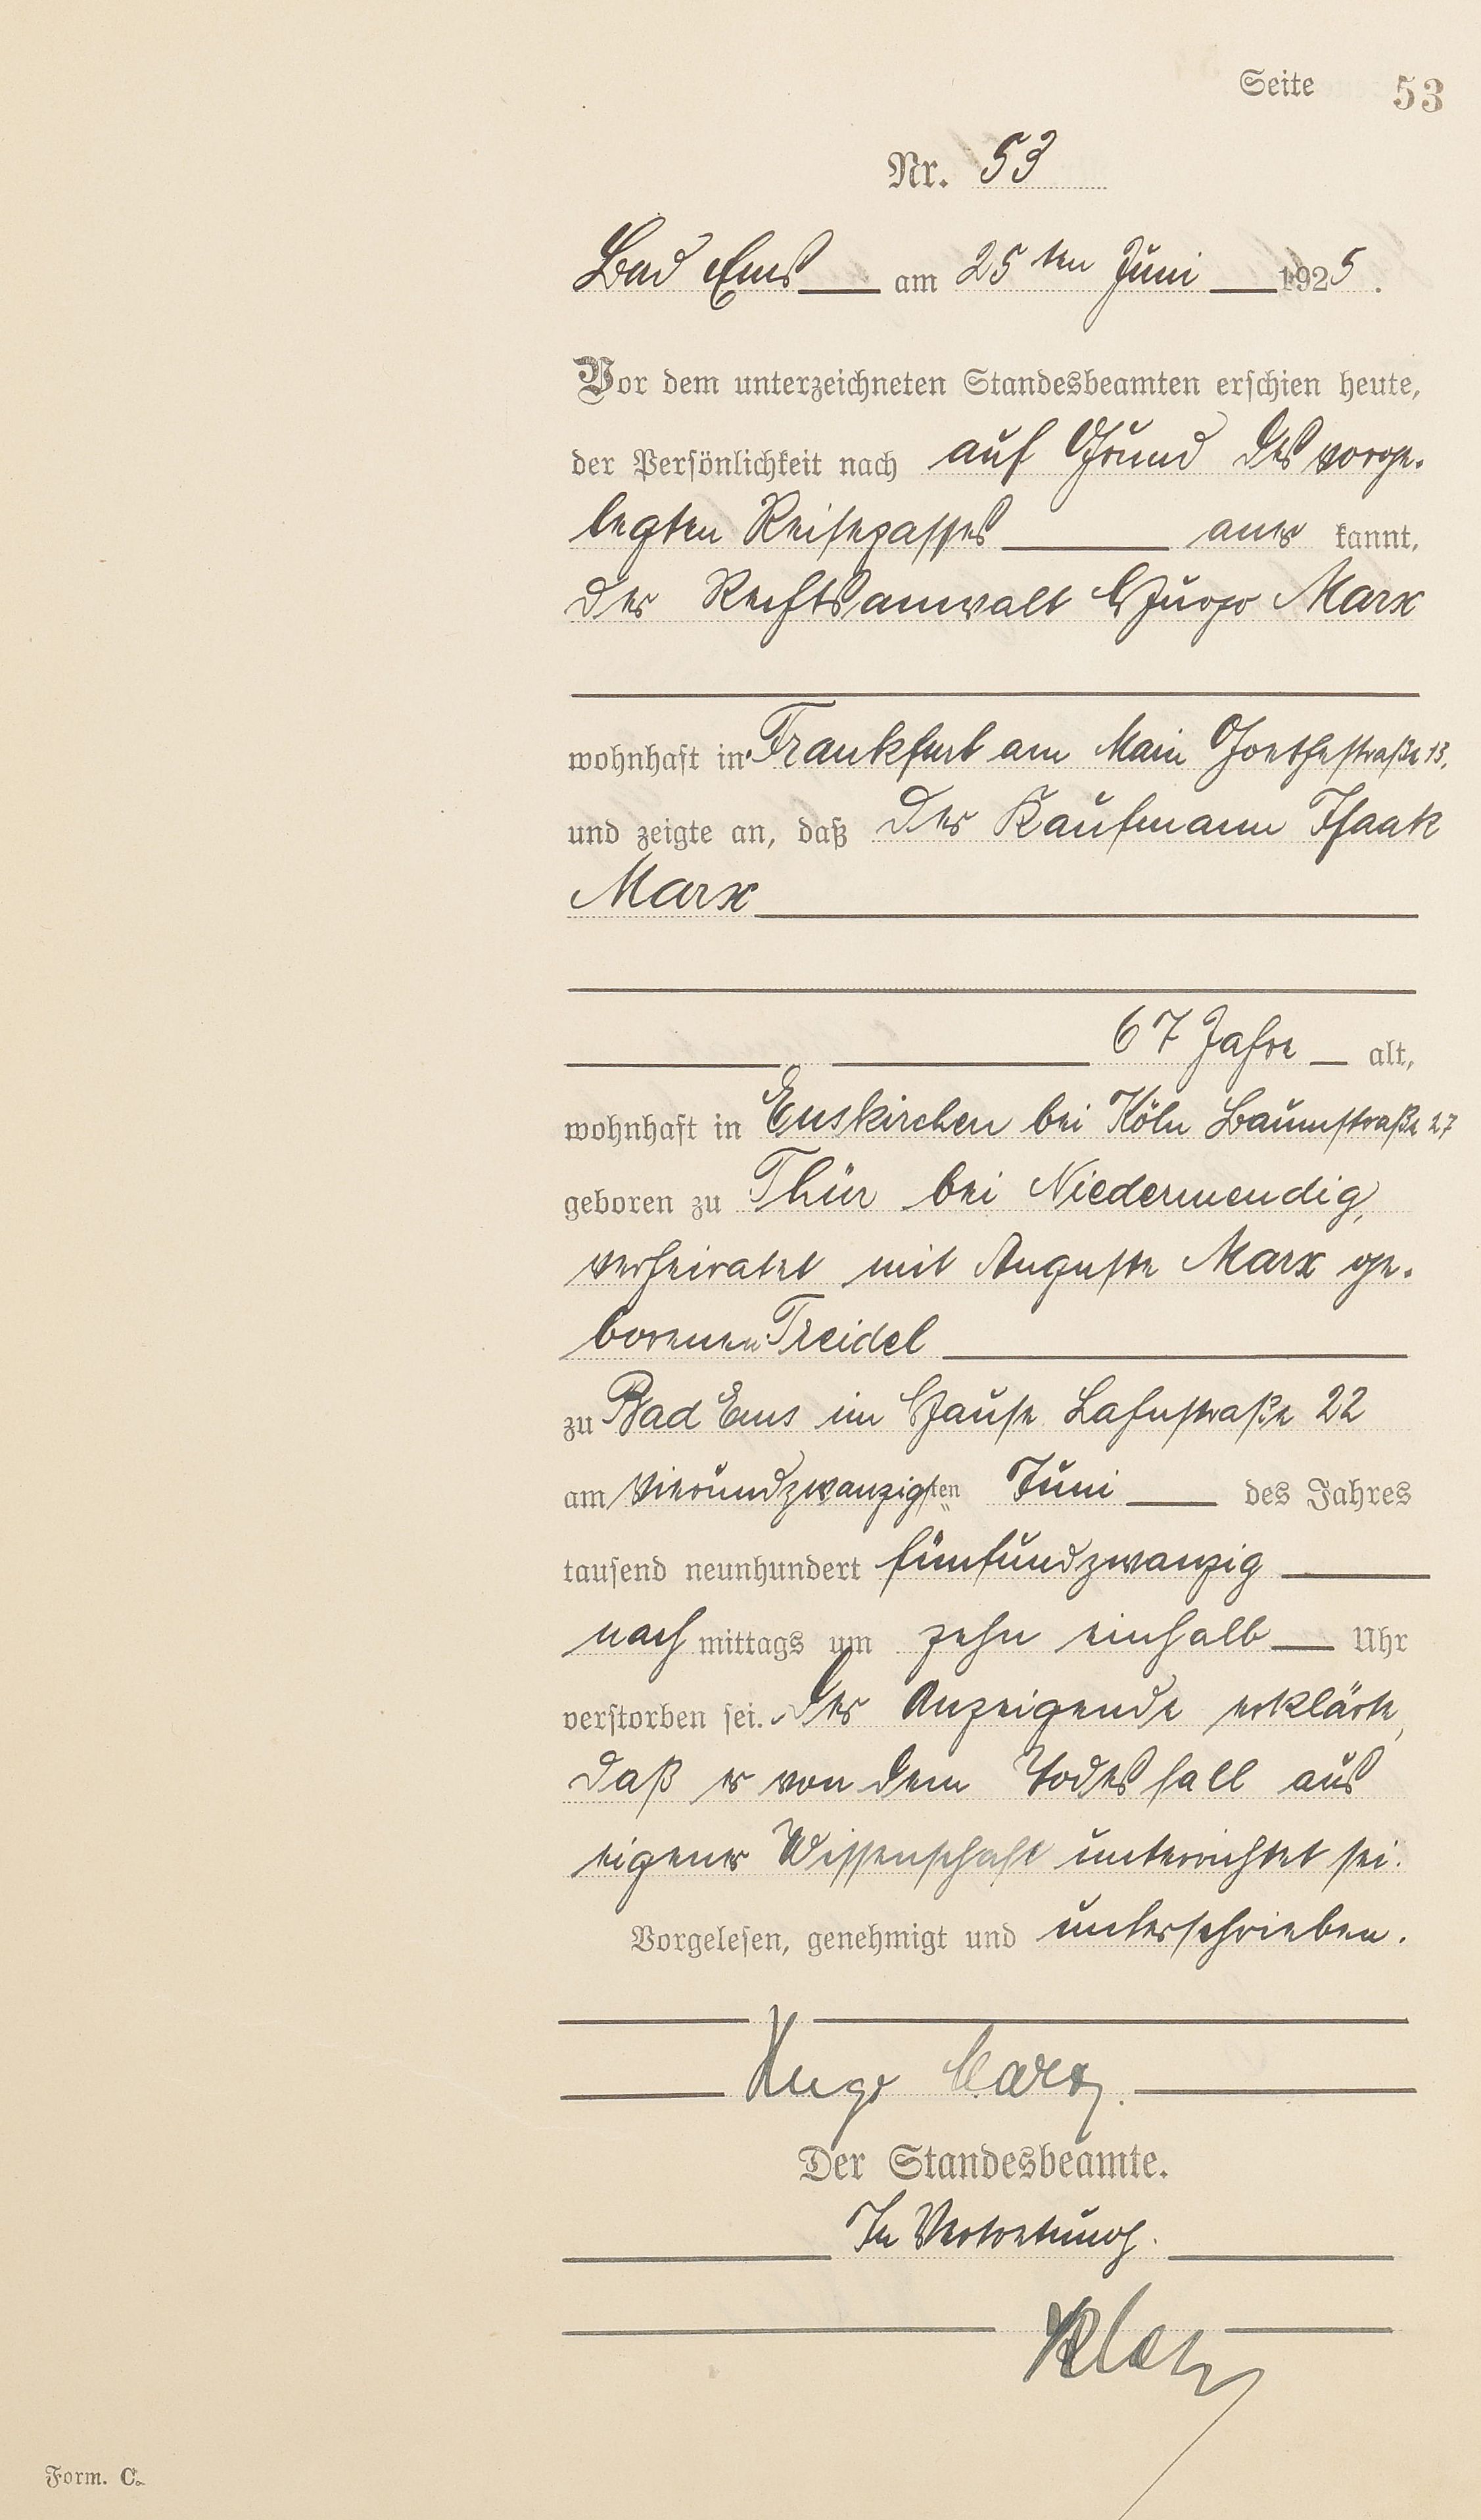 Seite 53
Nr. 53
Bad Ems am 25ten Juni 1925.
Vor dem unterzeichneten Standesbeamten erschien heute,
der Persönlichkeit nach auf Grund des vorge-
legten Reisepasses aner kannt,
der Rechtsanwalt Hugo Marx
wohnhaft in Frankfurt am Main Goethestraße 13.
und zeigte an, daß der Kaufmann Isaak
Marx
67 Jahre alt,
wohnhaft in Euskirchen bei Köln Baumstraße 27
geboren zu Thür bei Niedermendig,
verheiratet mit Auguste Marx ge-
borenen Treidel
zu Bad Ems im Hause Lahnstraße 22
am vierundzwanzigten Juni des Jahres
tausend neunhundert fünfundzwanzig
nach mittags um zehn einhalb Uhr
verstorben sei. Der Anzeigende erklärte,
daß er von dem Todesfall aus
eigener Wissenschaft unterrichtet sei.
Vorgelesen, genehmigt und unterschrieben.
Hugo Marx.
Der Standesbeamte.
In Vertretung.
Form. C.